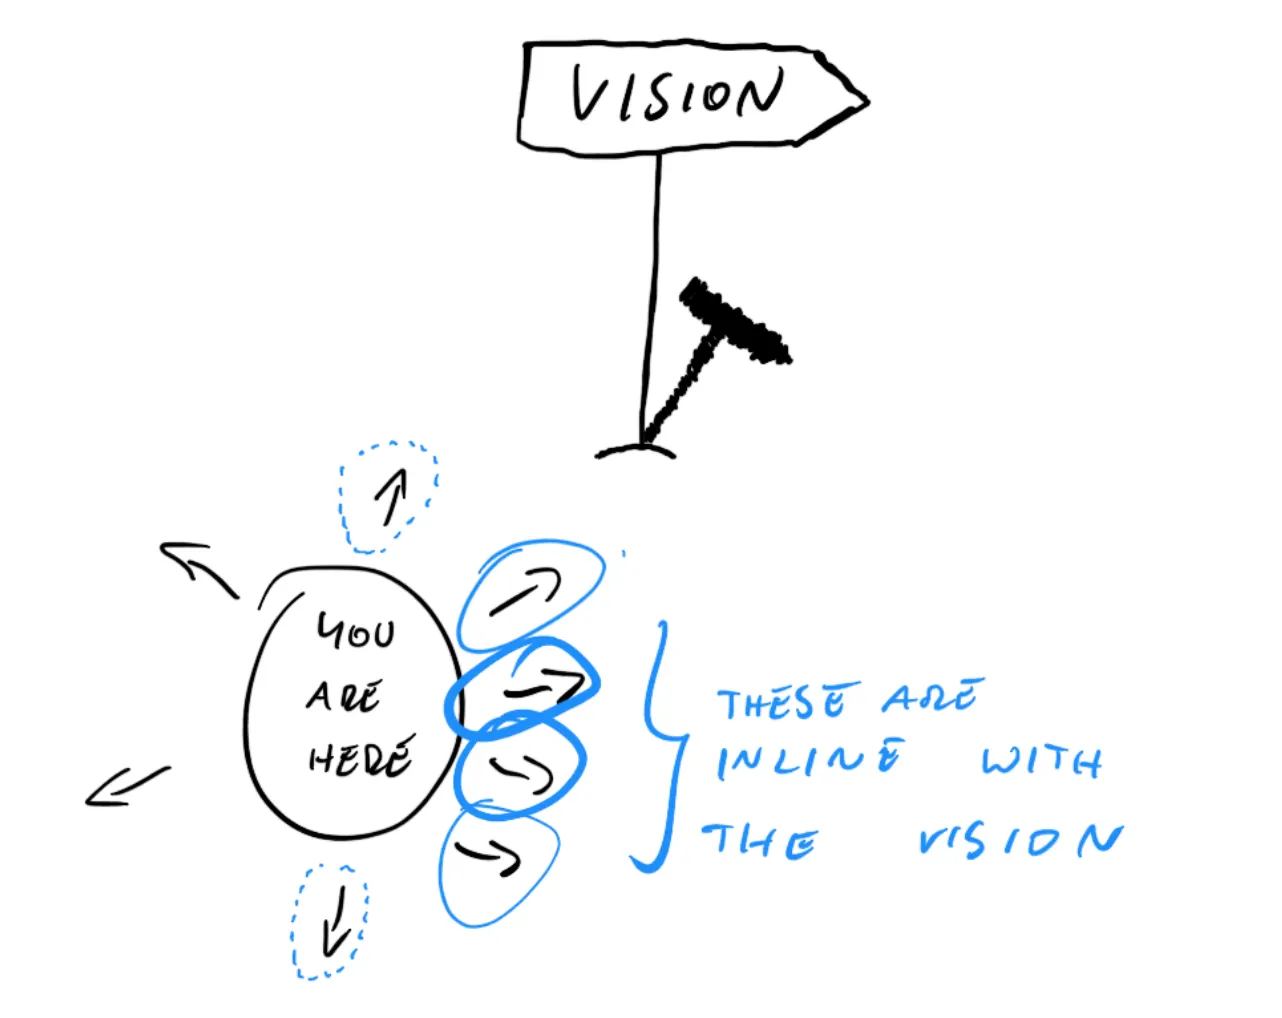 VISION
YOU
ARE
HERE
THESE ARE
INLINE WITH
THE VISION